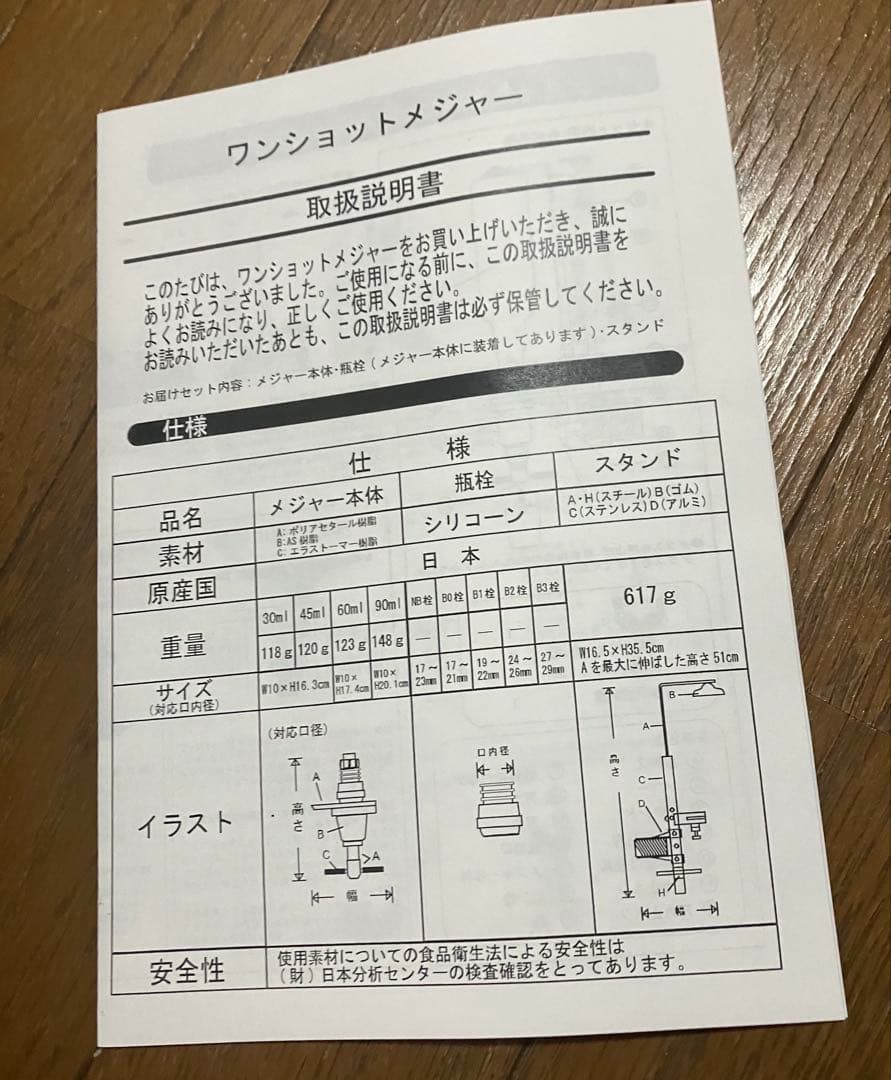 ワンショットメジャー
取扱説明書
このたびは、ワンショットメジャーをお買い上げいただき、誠に
ありがとうございました。ご使用になる前に、この取扱説明書を
よくお読みになり、正しくご使用ください。
お読みいただいたあとも、この取扱説明書は必ず保管してください。
お届けセット内容：メジャー本体・瓶栓（メジャー本体に装着してあります）・スタンド
仕様
仕 様
品名 メジャー本体 瓶栓 スタンド
素材
A：ポリアセタール樹脂
B：AS樹脂
C：エラストーマー樹脂
シリコーン
A・H(スチール)B(ゴム)
C(ステンレス)D(アルミ)
原産国 日 本
重量
30ml 45ml 60ml 90ml NB栓 B0栓 B1栓 B2栓 B3栓
118g 120g 123g 148g — — — — —
617g
サイズ
(対応口内径)
W10×H16.3cm
W10×
H17.4cm
W10×
H20.1cm
17～
23mm
17～
21mm
19～
22mm
24～
26mm
27～
29mm
W16.5×H35.5cm
Aを最大に伸ばした高さ51cm
イラスト
(対応口径)
A
高さ
B
C
A
幅
口内径
B
A
高さ
C
D
H
幅
安全性
使用素材についての食品衛生法による安全性は
(財)日本分析センターの検査確認をとってあります。